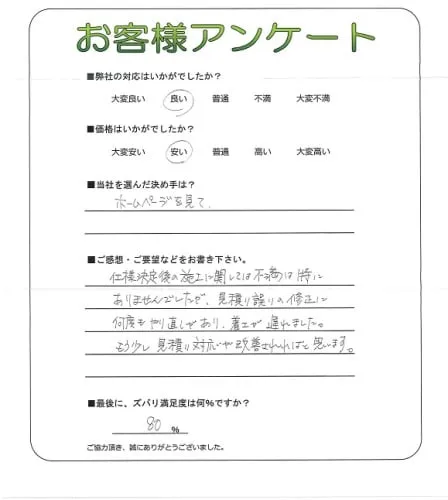 お客様アンケート
■弊社の対応はいかがでしたか?
大変良い 良い 普通 不満 大変不満
■価格はいかがでしたか?
大変安い 安い 普通 高い 大変高い
■当社を選んだ決め手は?
ホームページを見て、
■ご感想・ご要望などをお書き下さい。
仕様決定後の施工に関しては不満は特に
ありませんでしたが、見積り誤りの修正に
何度もやり直しがあり、着工が遅れました。
もう少し見積り対応が改善されればと思います。
■最後に、ズバリ満足度は何%ですか?
80 %
ご協力頂き、誠にありがとうございました。